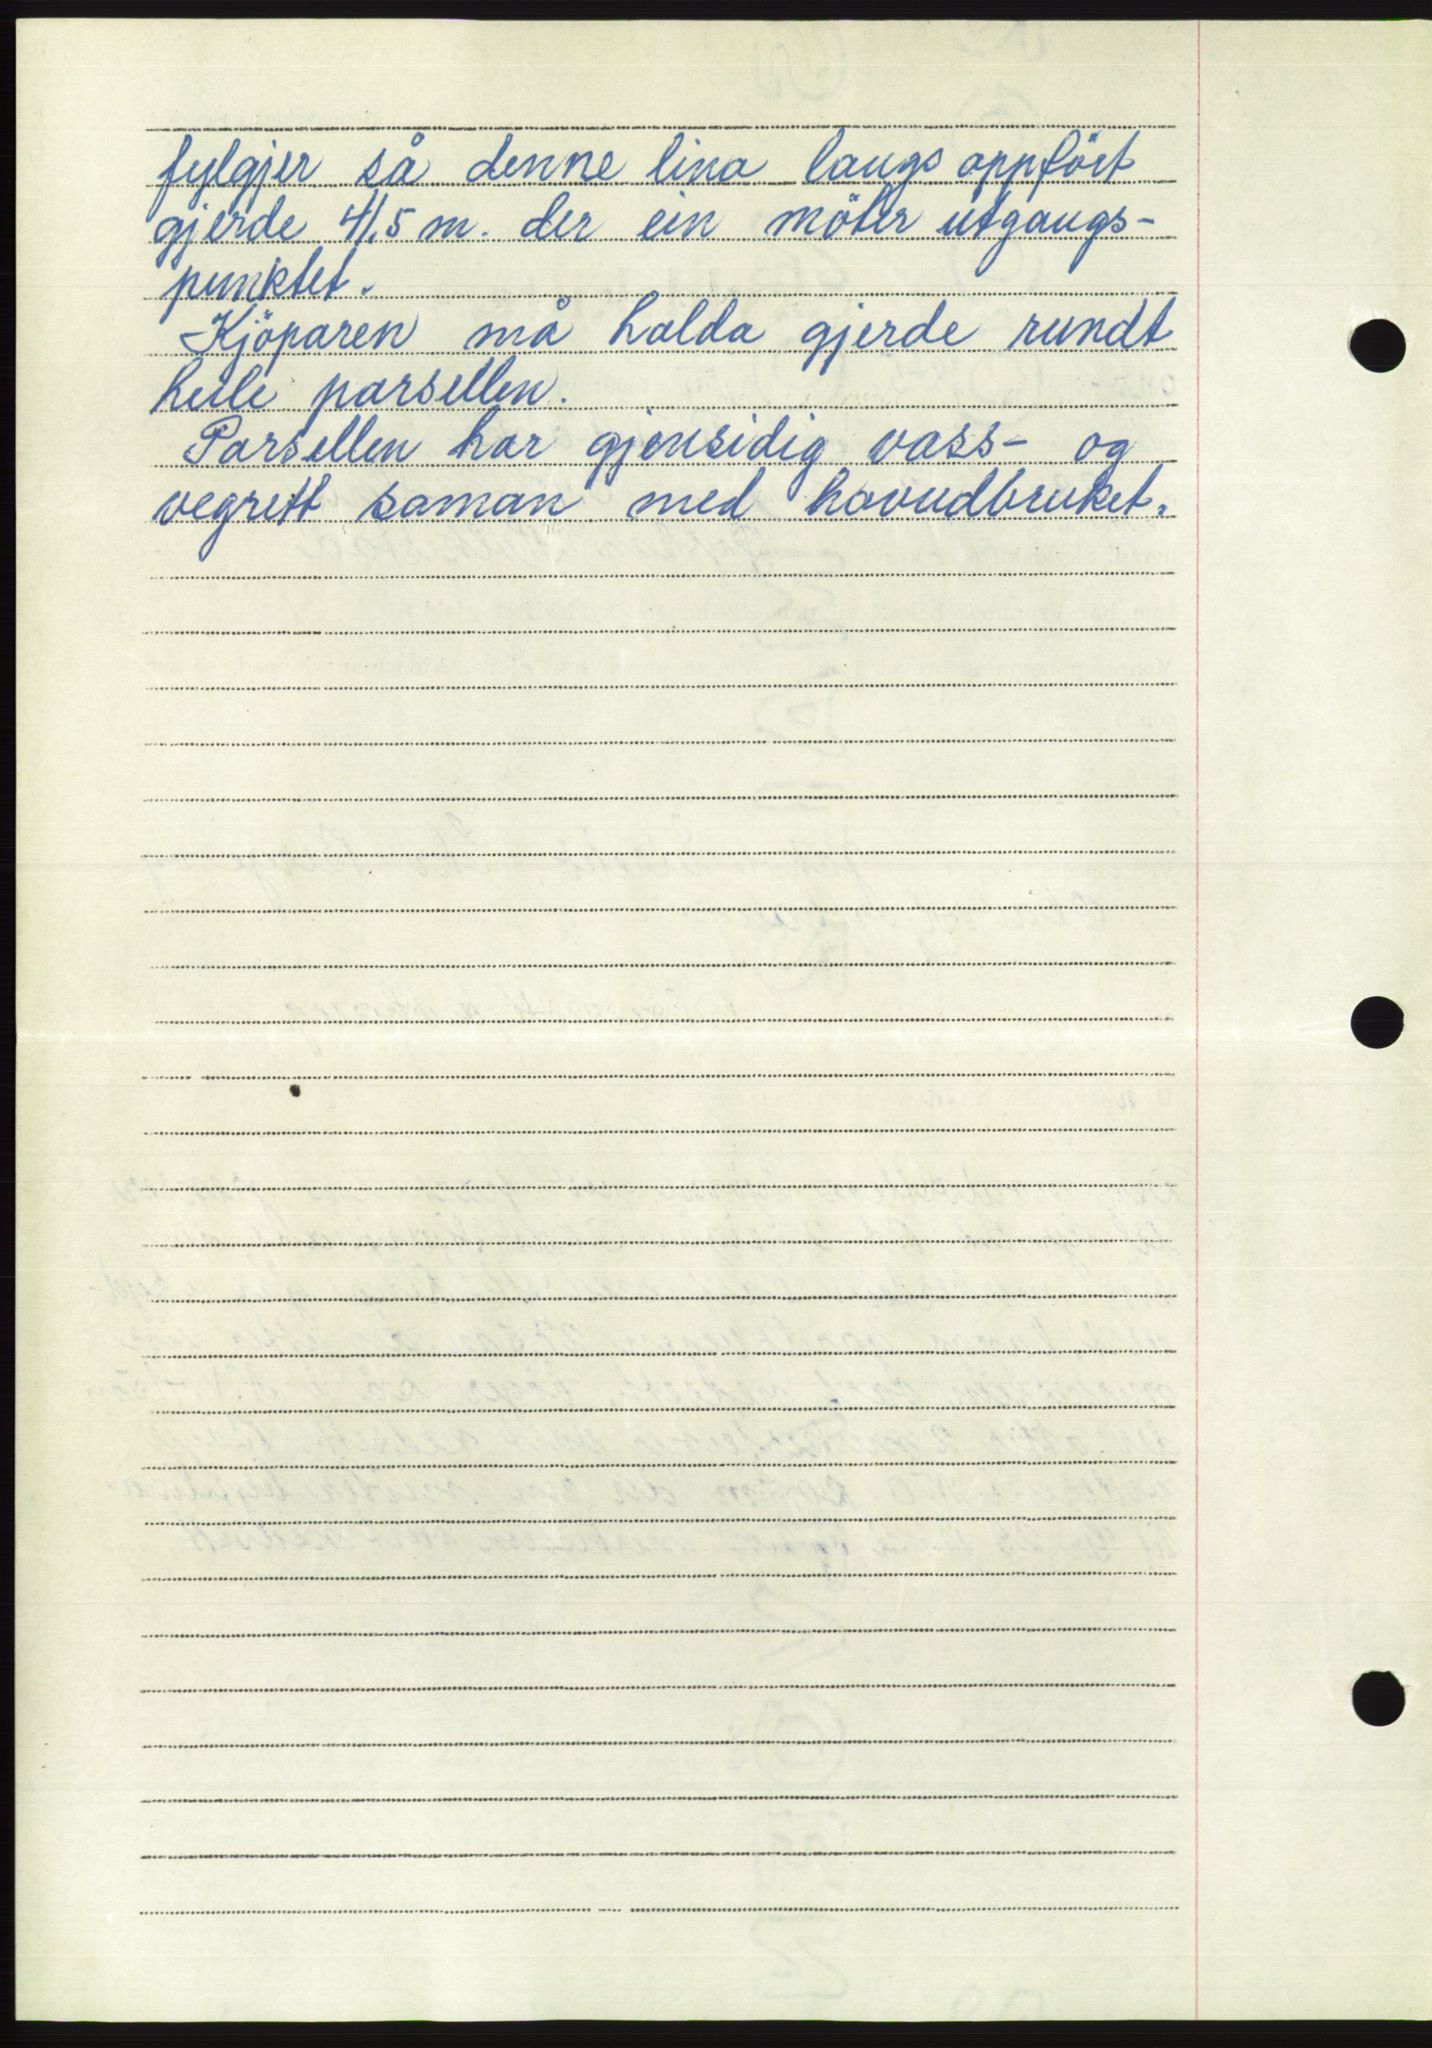 fylgjer så denne lina langs oppfört
gjerde 41.5 m. der ein möter utgangs-
punktet.
-Kjöparen må halda gjerde rundt
heile parsellen.
Parsellen har gjensidig vass- og
vegrett saman med hovudbruket.